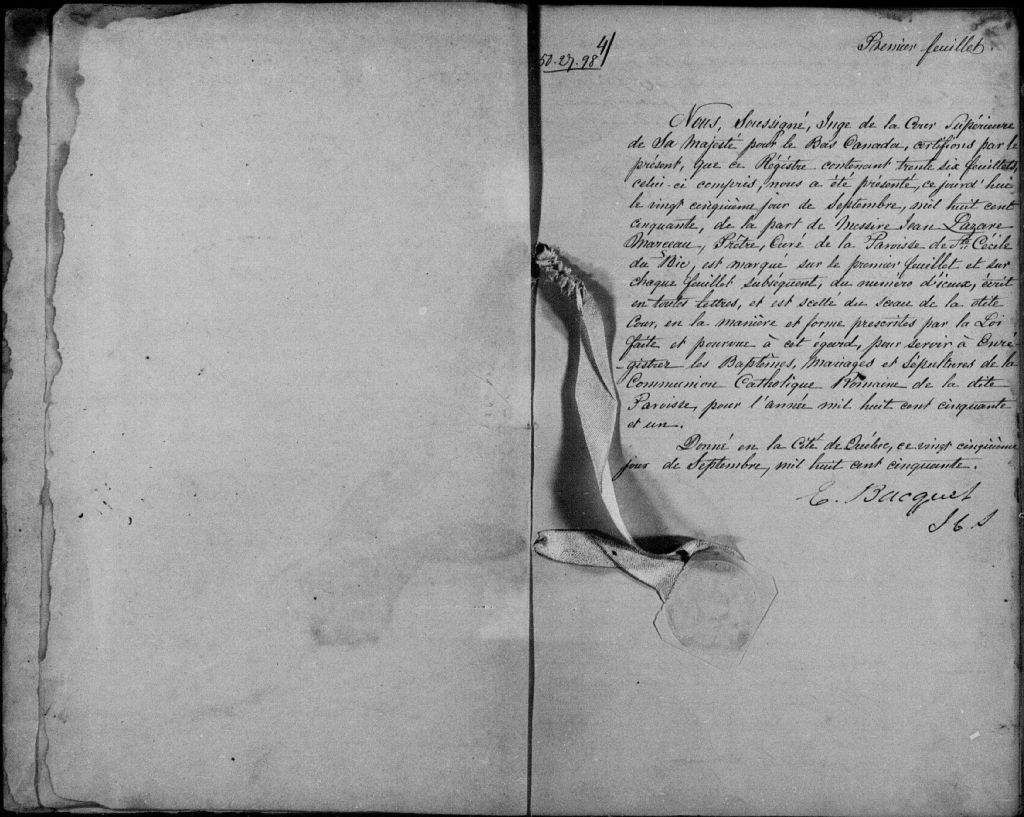 4/
50.27.98
Premier feuillet.
Nous, Soussigné, Juge de la Cour Supérieure
de Sa Majesté pour le Bas Canada, certifions par le
présent, que ce Régistre contenant trente six feuillets,
celui-ci compris, nous a été présenté, ce jourd'hui
le vingt cinquième jour de Septembre, mil huit cent
cinquante, de la part de Messire Jean Lazare
Marceau, Prêtre, Curé de la Paroisse de Ste Cécile
du Bic, est marqué sur le premier feuillet et sur
chaque feuillet subséquent, du numéro d'iceux, écrit
en toutes lettres, et est scellé du sceau de la dite
Cour, en la manière et forme prescrites par la Loi
faite et pourvue à cet égard, pour servir à Enré-
-gistrer les Baptêmes, Mariages et Sépultures de la
Communion Catholique Romaine de la dite
Paroisse, pour l'année mil huit cent cinquante
et un.
Donné en la Cité de Québec, ce vingt cinquième
jour de Septembre, mil huit cent cinquante.
E. Bacquet
J C S